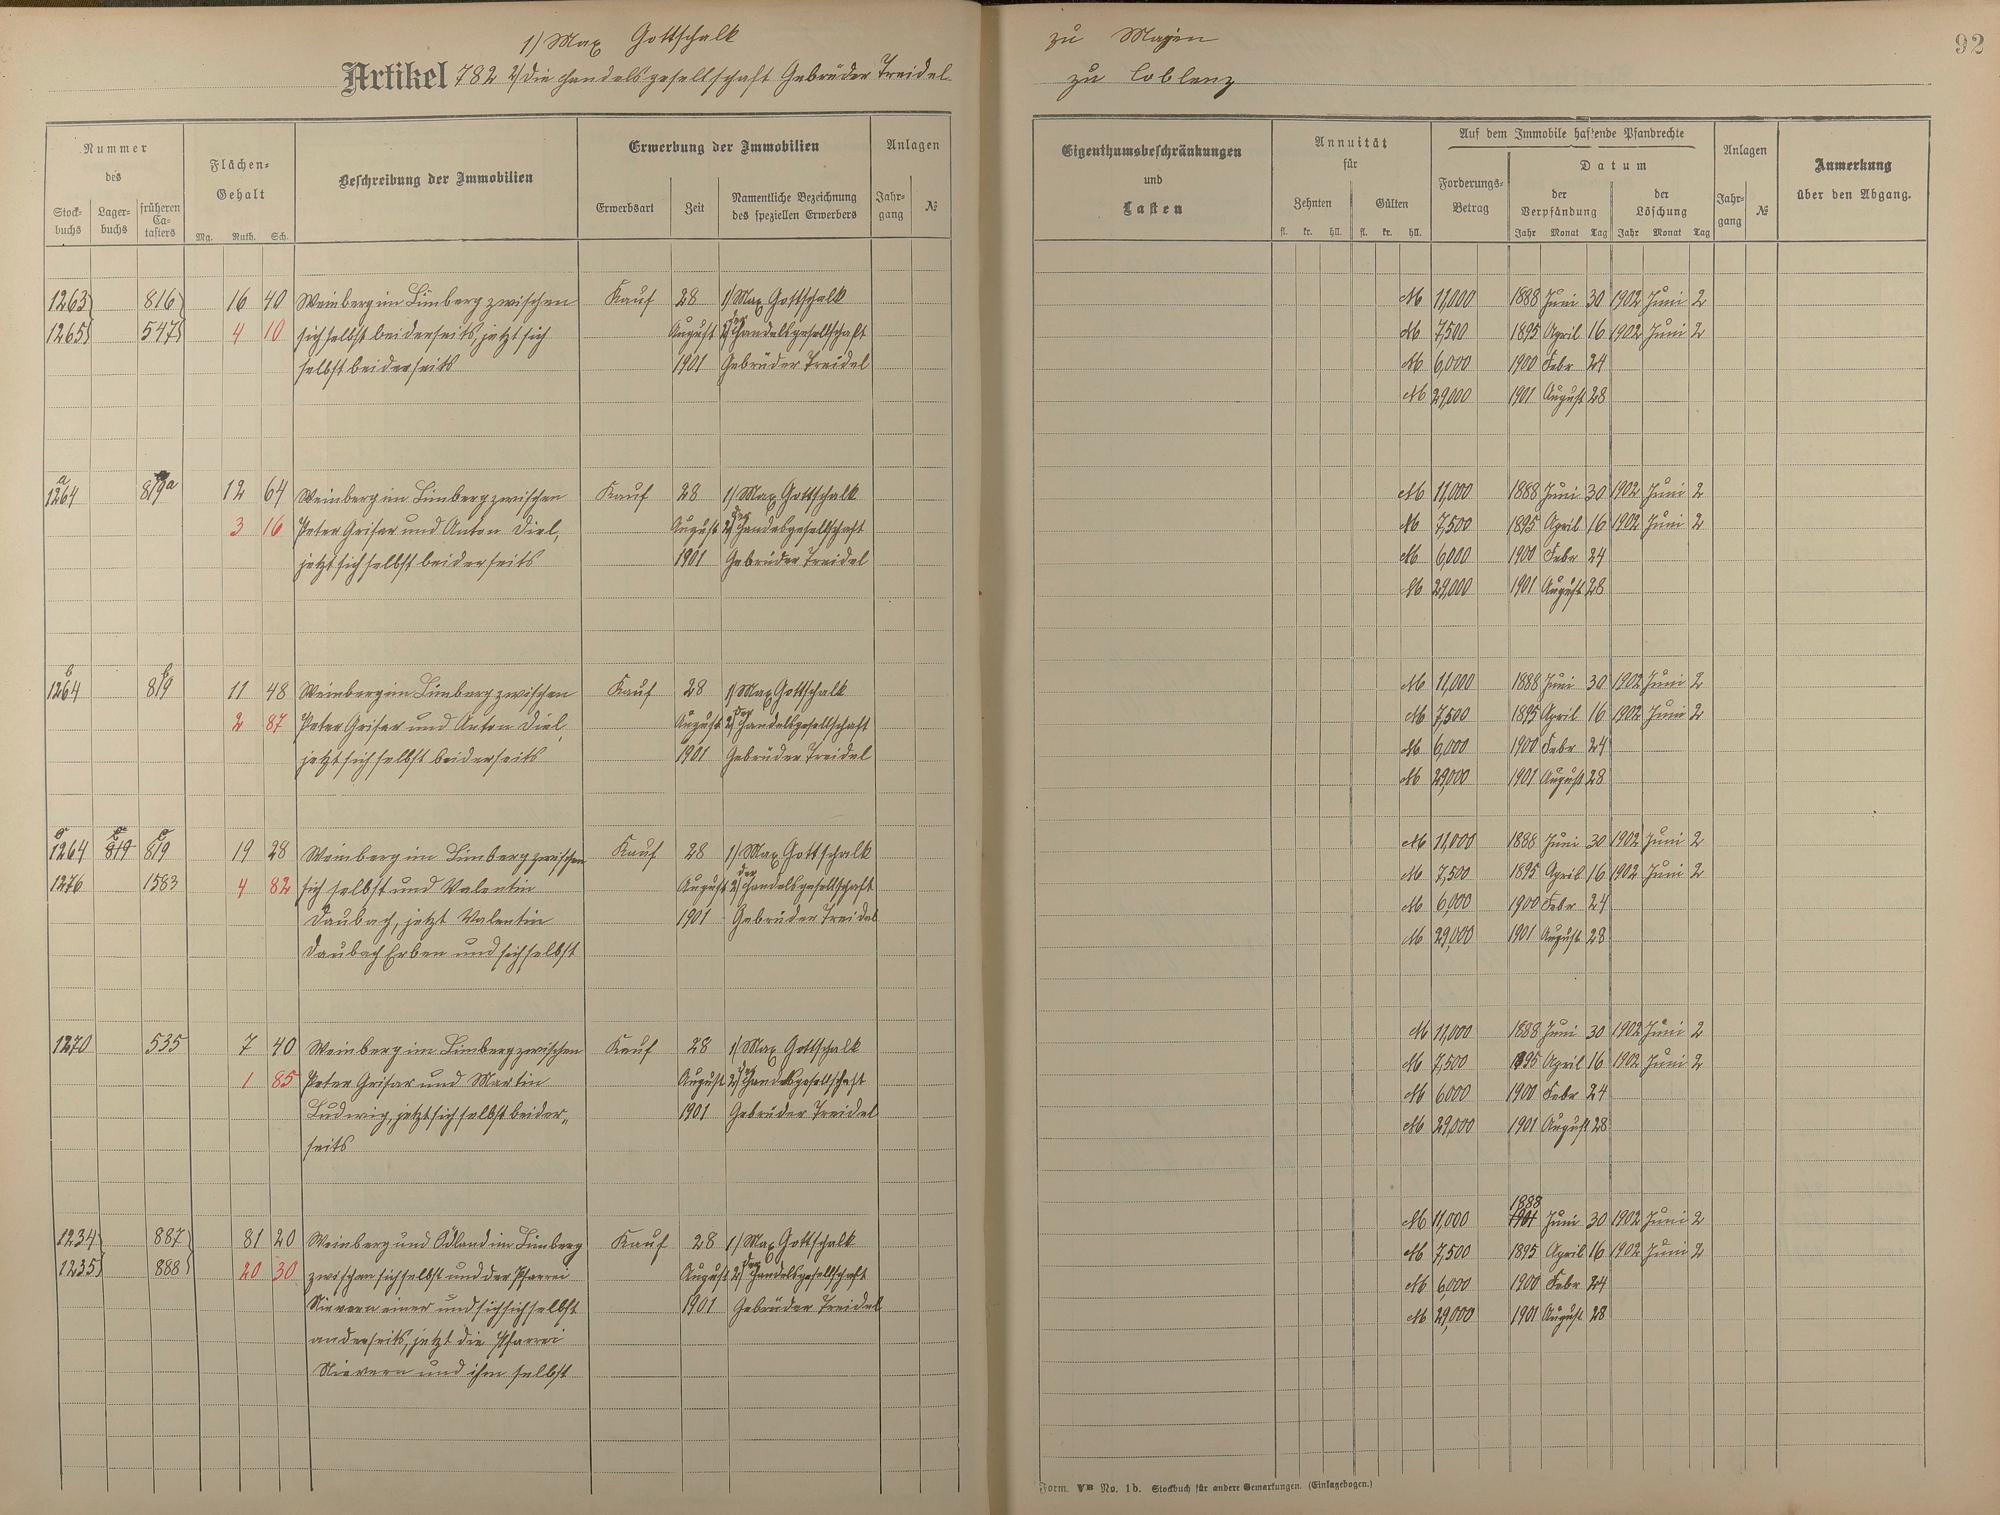 1) Max Gottschalk
Artikel 782 2) die Handelsgesellschaft Gebrüder Treidel
Nummer
des
Stock-
buchs
Lager-
buchs
früheren
Ca-
tasters
Flächen-
Gehalt
Mg. Ruth. Sch.
Beschreibung der Immobilien
Erwerbung der Immobilien
Erwerbsart
Zeit
Namentliche Bezeichnung
des speziellen Erwerbers
Anlagen
Jahr-
gang
№
1263 816 16 40 Weinberg im Limberg zwischen Kauf 28 1) Max Gottschalk
1265 547 4 10 sich selbst beiderseits, jetzt sich August 2) der Handelsgesellschaft
selbst beiderseits 1901 Gebrüder Treidel
1264 a 819 a 12 64 Weinberg im Limberg zwischen Kauf 28 1) Max Gottschalk
3 16 Peter Grisar und Anton Diel, August 2) der Handelsgesellschaft
jetzt sich selbst beiderseits 1901 Gebrüder Treidel
1264 b 819 b 11 48 Weinberg im Limberg zwischen Kauf 28 1) Max Gottschalk
2 87 Peter Grisar und Anton Diel, August 2) der Handelsgesellschaft
jetzt sich selbst beiderseits 1901 Gebrüder Treidel
1264 c 819 c 819 c 19 28 Weinberg im Limberg zwischen Kauf 28 1) Max Gottschalk
1276 1583 4 82 sich selbst und Valentin August 2) der Handelsgesellschaft
Daubach, jetzt Valentin 1901 Gebrüder Treidel
Daubach Erben und sich selbst
1270 535 7 40 Weinberg im Limberg zwischen Kauf 28 1) Max Gottschalk
1 85 Peter Grisar und Martin August 2) Handelsgesellschaft
Ludwig, jetzt sich selbst beider„ 1901 Gebrüder Treidel
seits
1234 887 81 20 Weinberg und Ödland im Limberg Kauf 28 1) Max Gottschalk
1235 888 20 30 zwischen sich selbst und der Pfarrei August 2) der Handelsgesellschaft
Nievern einer und sich sich selbst 1901 Gebrüder Treidel
anderseits, jetzt die Pfarrei
Nievern und ihm selbst
zu Mayen
zu Coblenz
92
Eigenthumsbeschränkungen
und
Lasten
Annuität
für
Zehnten
Gülten
fl. kr. hll. fl. kr. hll.
Auf dem Immobile haftende Pfandrechte
Forderungs-
Betrag
Datum
der
Verpfändung
der
Löschung
Jahr Monat Tag Jahr Monat Tag
Anlagen
Jahr-
gang
№
Anmerkung
über den Abgang.
M 11,000 1888 Juni 30 1902 Juni 2
M 7,500 1895 April 16 1902 Juni 2
M 6,000 1900 Febr 24
M 29,000 1901 August 28
M 11,000 1888 Juni 30 1902 Juni 2
M 7,500 1895 April 16 1902 Juni 2
M 6,000 1900 Febr 24
M 29,000 1901 August 28
M 11,000 1888 Juni 30 1902 Juni 2
M 7,500 1895 April 16 1902 Juni 2
M 6,000 1900 Febr 24
M 29,000 1901 August 28
M 11,000 1888 Juni 30 1902 Juni 2
M 7,500 1895 April 16 1902 Juni 2
M 6,000 1900 Febr 24
M 29,000 1901 August 28
M 11,000 1888 Juni 30 1902 Juni 2
M 7,500 1895 April 16 1902 Juni 2
M 6000 1900 Febr 24
M 29,000 1901 August 28
1888
M 11,000 1901 Juni 30 1902 Juni 2
M 7,500 1895 April 16 1902 Juni 2
M 6,000 1900 Febr 24
M 29,000 1901 August 28
Form. VB No. 1b. Stockbuch für andere Gemarkungen. (Einlagebogen.)